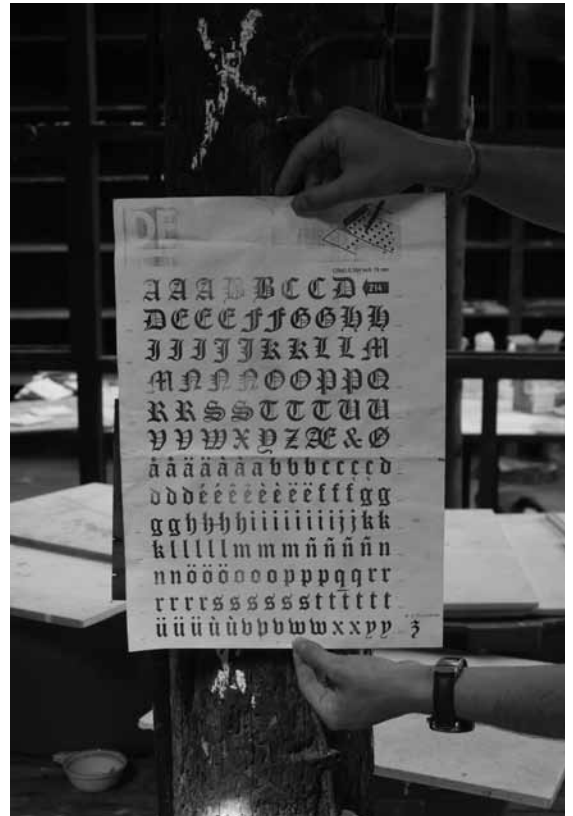 DE
A A A B B C C D 214
D E E E F F G G H H
I I J J J K K L L M
M N N N O O P P Q
R R S S T T T U U
V V W X Y Z Æ & Ø
å å ä ä ä à a b b b c c ç ç d
d d d é é ê è è ë ë f f f g g
g g h h h h i i i i i i i j j k k
k l l l l l m m m ñ ñ ñ ñ n
n n ö ö ö o o o p p p q q r r
r r r r s s s s s s t t t t t t
ü ü ü ù ù v v v w w x x y y z